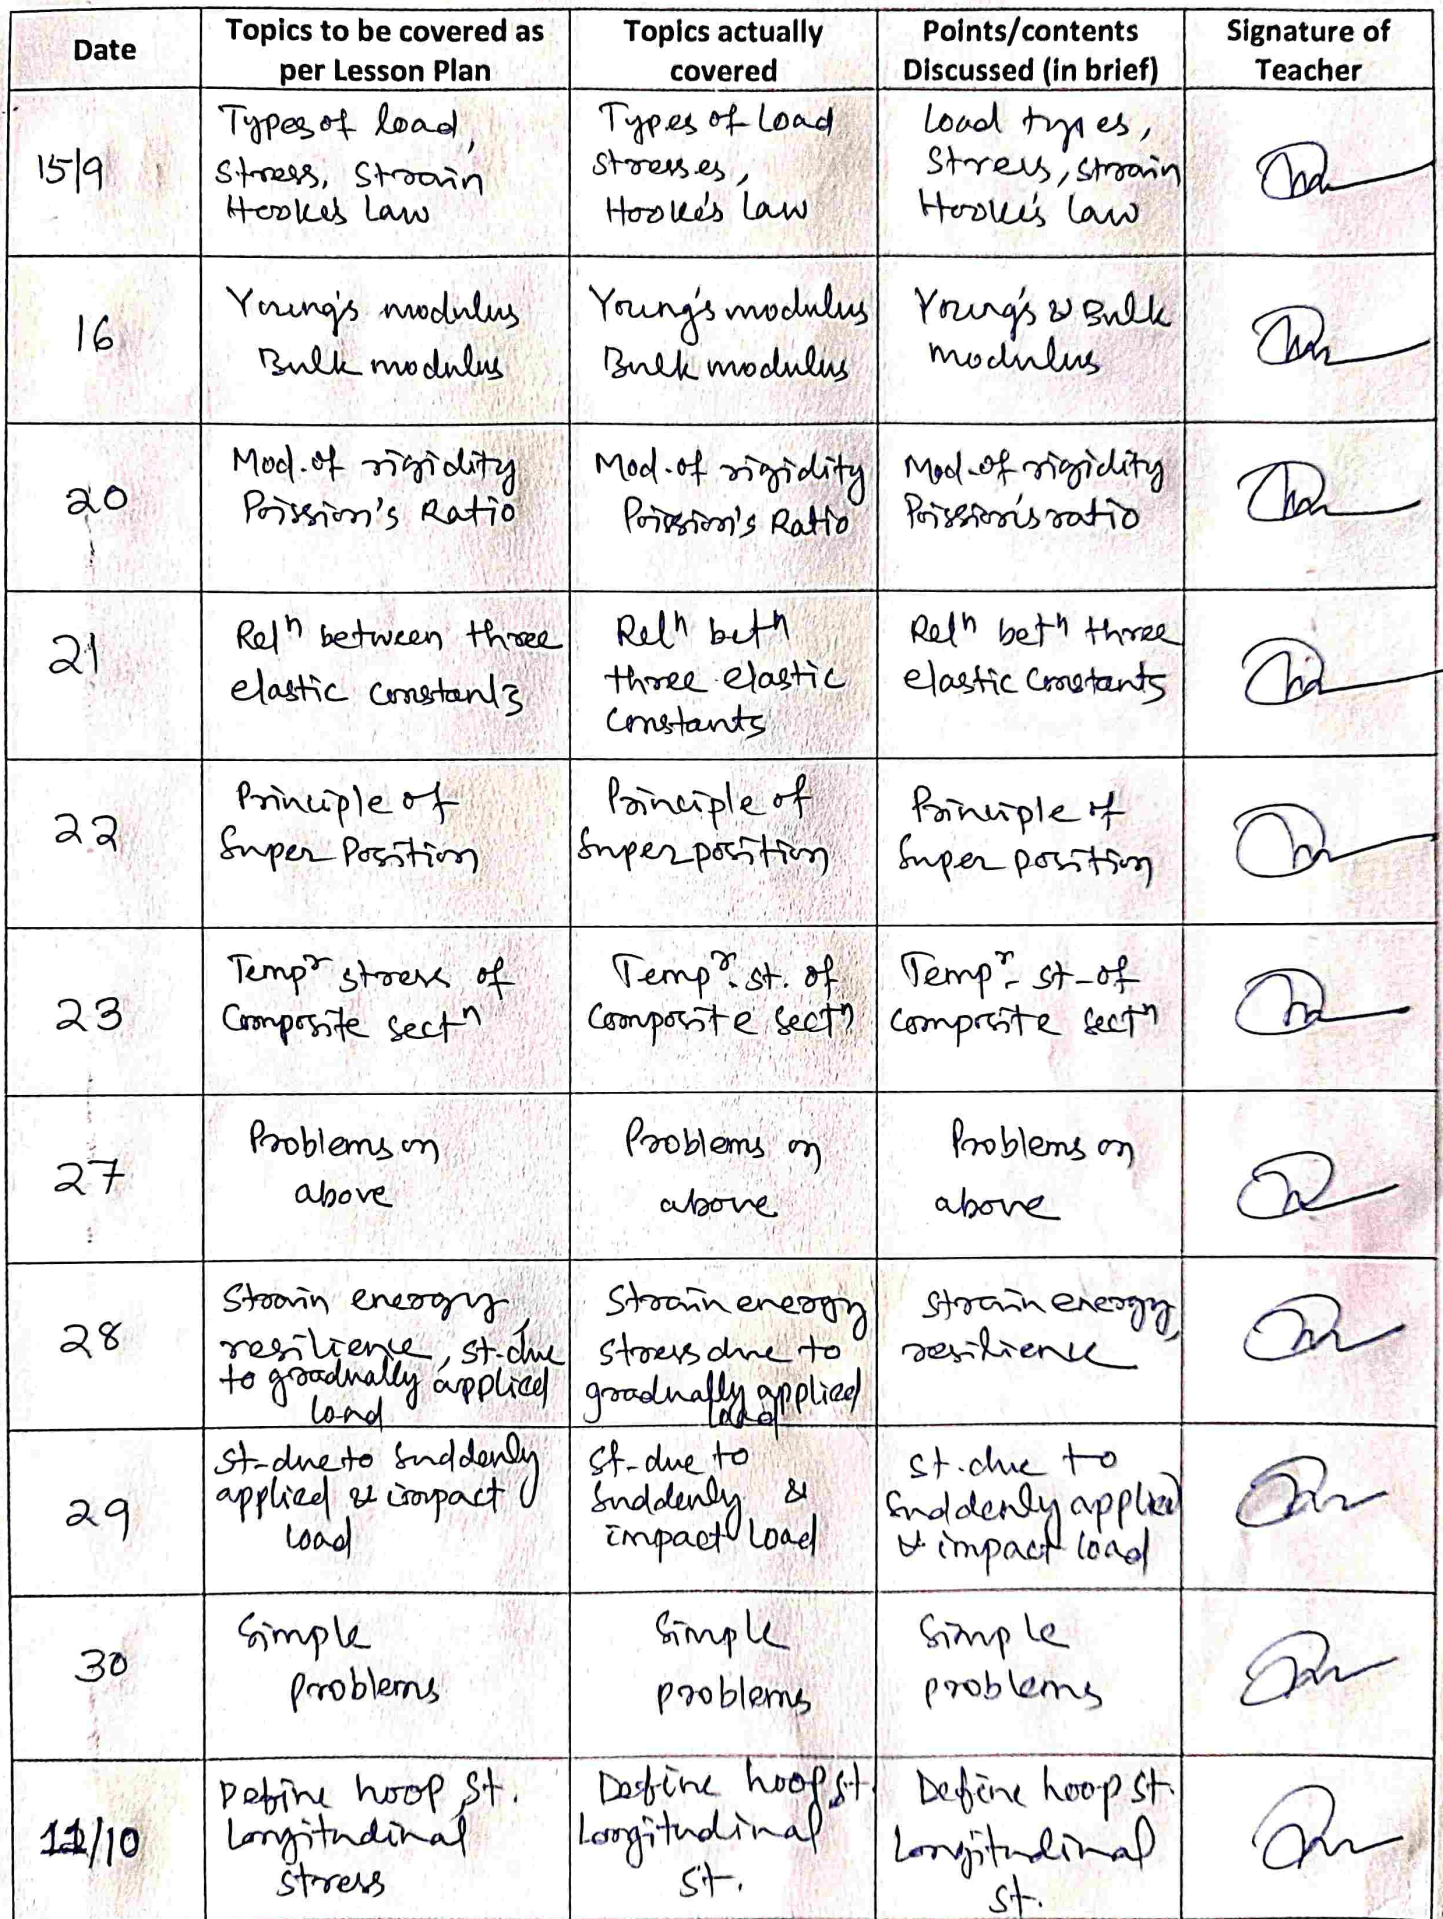 Date
Topics to be covered as
per Lesson Plan
Topics actually
covered
Points/contents
Discussed (in brief)
Signature of
Teacher
15/9
Types of load,
Stress, Strain
Hooke's Law
Types of Load
Stresses,
Hooke's Law
Load types,
Stress, strain
Hooke's Law
16
Young's modulus
Bulk modulus
Young's modulus
Bulk modulus
Young's & Bulk
modulus
20
Mod. of rigidity
Poission's Ratio
Mod. of rigidity
Poission's Ratio
Mod. of rigidity
Poission's ratio
21
Relⁿ between three
elastic constants
Relⁿ betⁿ
three elastic
constants
Relⁿ betⁿ three
elastic constants
22
Principle of
Super Position
Principle of
Superposition
Principle of
Super position
23
Tempʳ stress of
Composite sectⁿ
Tempʳ. st. of
Composite sectⁿ
Tempʳ- st-of
Composite sectⁿ
27
Problems on
above
Problems on
above
Problems on
above
28
Strain energy,
resilience, st. due
to gradually applied
load
Strain energy
stress due to
gradually applied
load
Strain energy,
resilience
29
St-due to Suddenly
applied & impact
Load
St-due to
Suddenly &
impact Load
St. due to
Suddenly applied
& impact load
30
Simple
problems
Simple
problems
Simple
problems
11/10
Define hoop st.
Longitudinal
stress
Define hoop st.
Longitudinal
st.
Define hoop st.
Longitudinal
st.